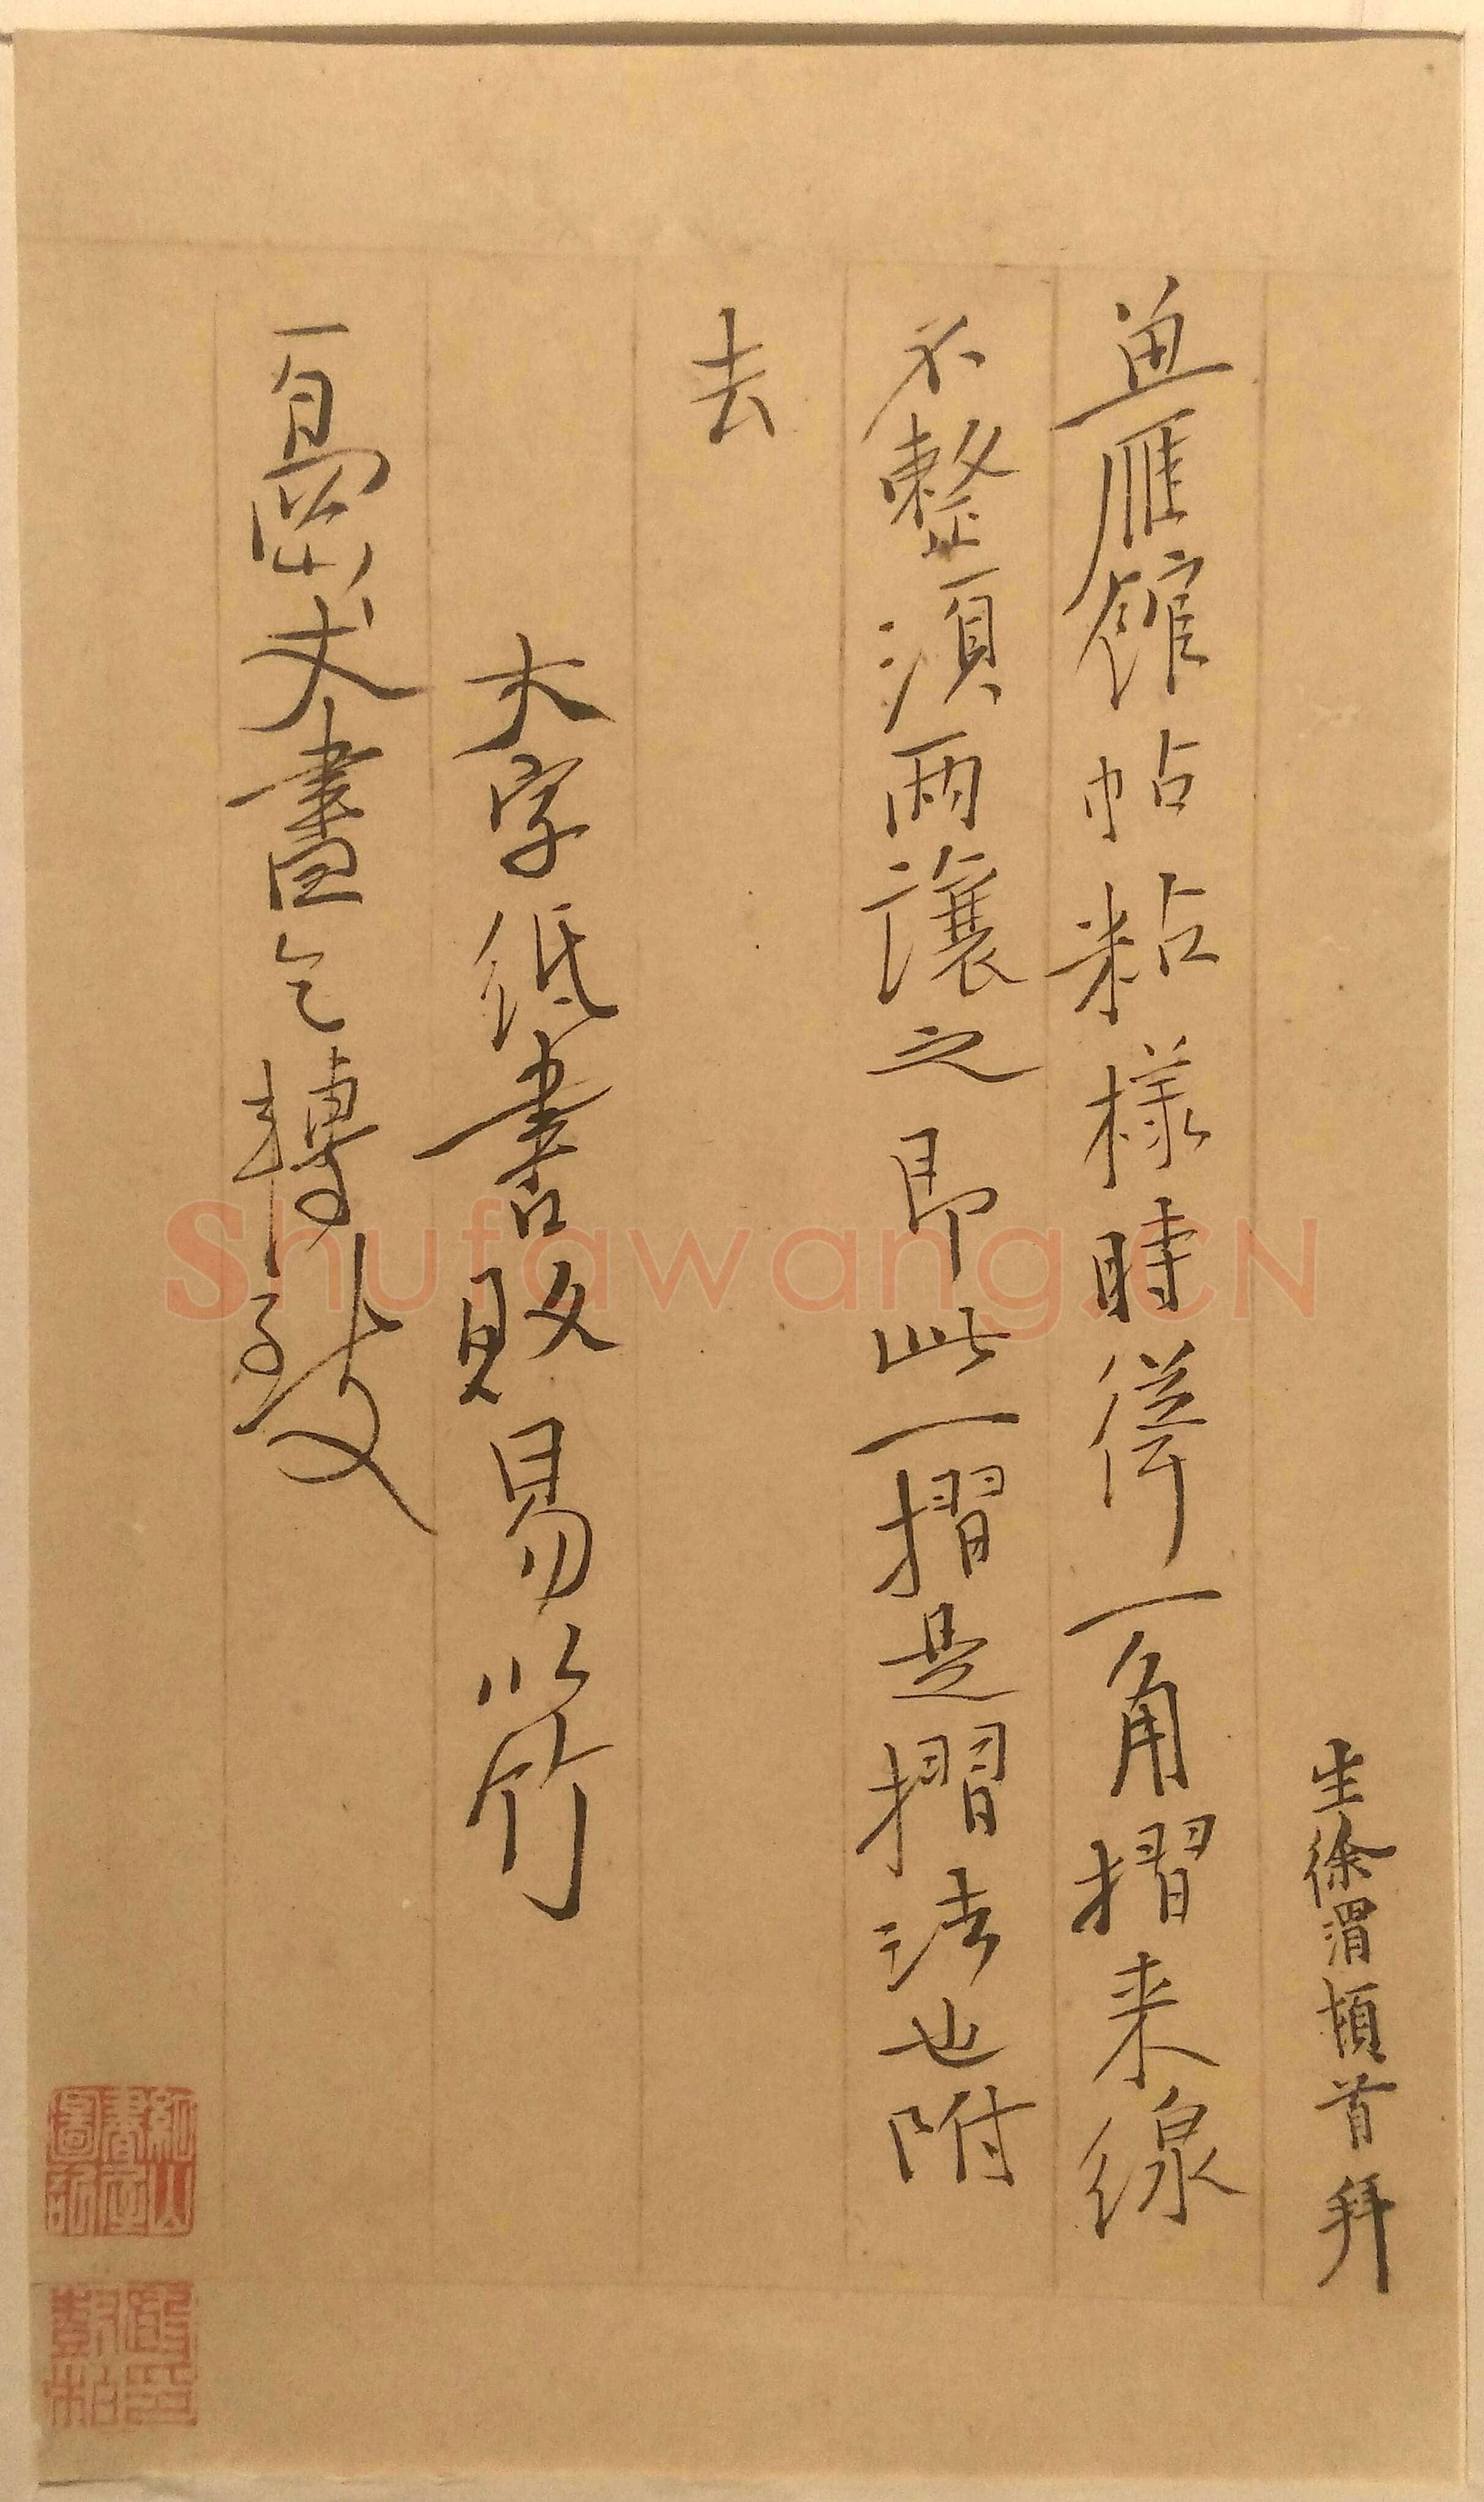 生徐渭頓首拜
並雁館帖粘樣時從一角摺来線
不整須兩讓之即此一摺是摺法也附
去
大字紙書敗易以竹
一 丈畫乞轉致
Shufawang.CN